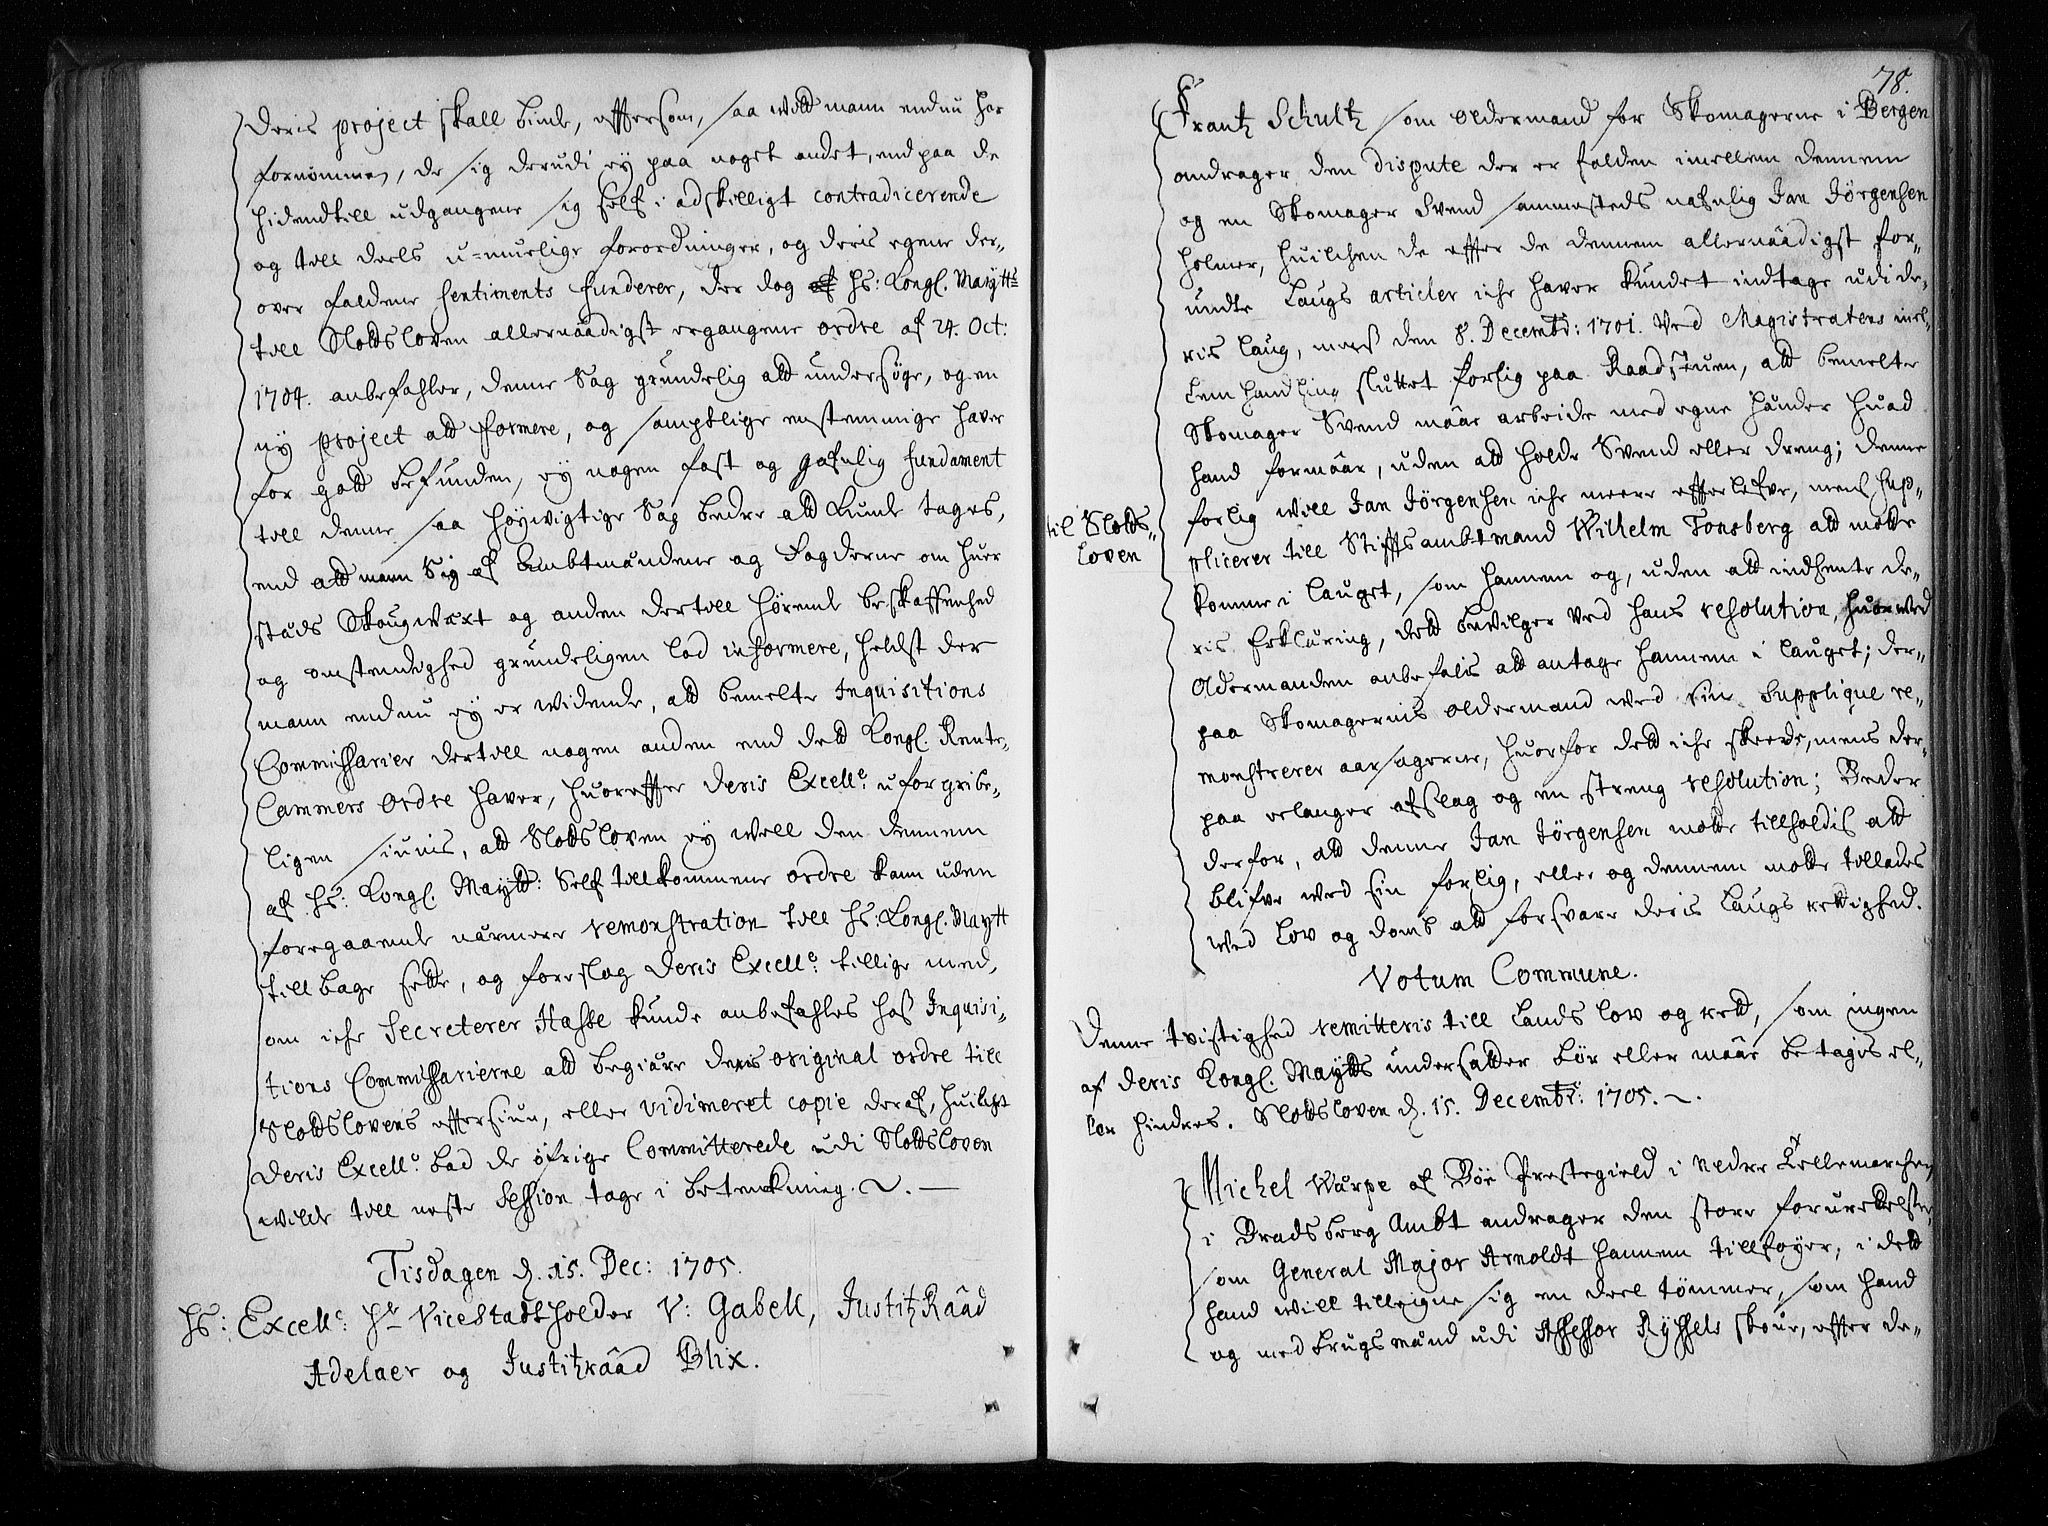 deris project skall binde, effersom, saa widt mann endnu har
fornommen, de sig derudi ey paa noget andet, end paa de
hidendtill udgangene sig self i adskilligt contradicerende
og till deels u-muelige forordninger, og deris egene der-
over faldene sentiments funderer, der dog af hs: Kongl. Maytts
till Slodsloven allernaadigst ergangene ordre af 24. Oct:
1704. anbefahler, denne Sag grundelig att undersøge, og en
ny project att formere, og samptlige enstemmige haver
for gott befunden, ey nogen fast og gafnlig fundament
till denne saa høywigtige Sag bedre att kunde tages,
end att mann Sig af Ambtmændene og Fogderne om huer
stæds Skougwæxt og anden dertill hørende beskaffenhed
og omstendighed grundeligen lod informere, heldst der
mann endnu ey er widende, att bemelte Inquisitions
Commissarier dertill nogen anden end dett Kongl. Rente-
Cammers ordre haver, huoreffter deris Excell: uforgribe-
ligen siunis, att Slodsloven ey well den dennem
af hs: Kongl. Maytt: Self tillkommene ordre kann uden
foregaaende nærmere remonstration till hs: Kongl. Maytt
tillbage sette, og foreslog deris Excell: tillige med,
om iche Secreterer Hasse kunde anbefahles hos Inquisi-
tions Commissarierne att begiære deris original ordre till
Slodslovens effersiun, eller vidimeret copie deraf, huilket
deris Excell: bad de øfrige Committerede udi Slodsloven
wilde till neste Session tage i betenckning.
Tisdagen d. 15. Dec: 1705.
hs: Excell: Hr Vicestadtholder V: Gabell, Justitz Raad
Adelaer og Justitzraad Blix.
78.
Frantz Schultz som oldermand for Skomagerne i Bergen
andrager den dispute der er falden imellem dennem
og en Skomager Svend sammesteds nafnlig Jan Jørgensen
Holmer, huilchen de effter de dennem allernaadigst for-
undte Laugs articler iche haver kundet indtage udi de-
ris laug, mens den 8. Decembr: 1701. ved Magistratens mel-
lem handling sluttet forlig paa Raadstuen, att bemelte
Skomager Svend maae arbeide med egne hænder huad
hand formaar, uden att holde Svend eller dreng; denne
til Slods-
loven
forlig will Jan Jørgensen iche meere effterlefve, mens sup-
plicerer till Stiftsambtmand Wilhelm Tonsberg att motte
komme i lauget, som hannem og, uden att indhente de-
ris Erklæring, dett bevilger ved hans resolution, huorved
Oldermanden anbefalis att antage hannem i lauget; der-
paa Skomagernis oldermand wed sin Supplique re-
monstrerer aarsagerne, huorfor dett iche skeede, mens der-
paa erlanger afslag og en streng resolution; Beder
derfor, att denne Jan Jørgensen motte tillholdis att
blifve wed sin forlig, eller og dennem motte tillades
wed lov og domb att forsvare deris Laugs rettighed.
Votum Commune.
Denne tvistighed remitteris till Lands lov og rett, som ingen
af deris Kongl. Maytts undersatter bør eller maae betagis el-
ler hindres. Slodsloven d. 15. Decembr: 1705.
Michel Warpe af Bøe Prestegield i Nedre Tellemarchen
i Bradsberg Ambt andrager den store forurettelse
som General Major Arnoldt hannem tillføyer, i dett
hand will tilleigne sig en deel tømmer, som hand
og med brugsmænd udi Assessor Ryssels skoue, effter de-